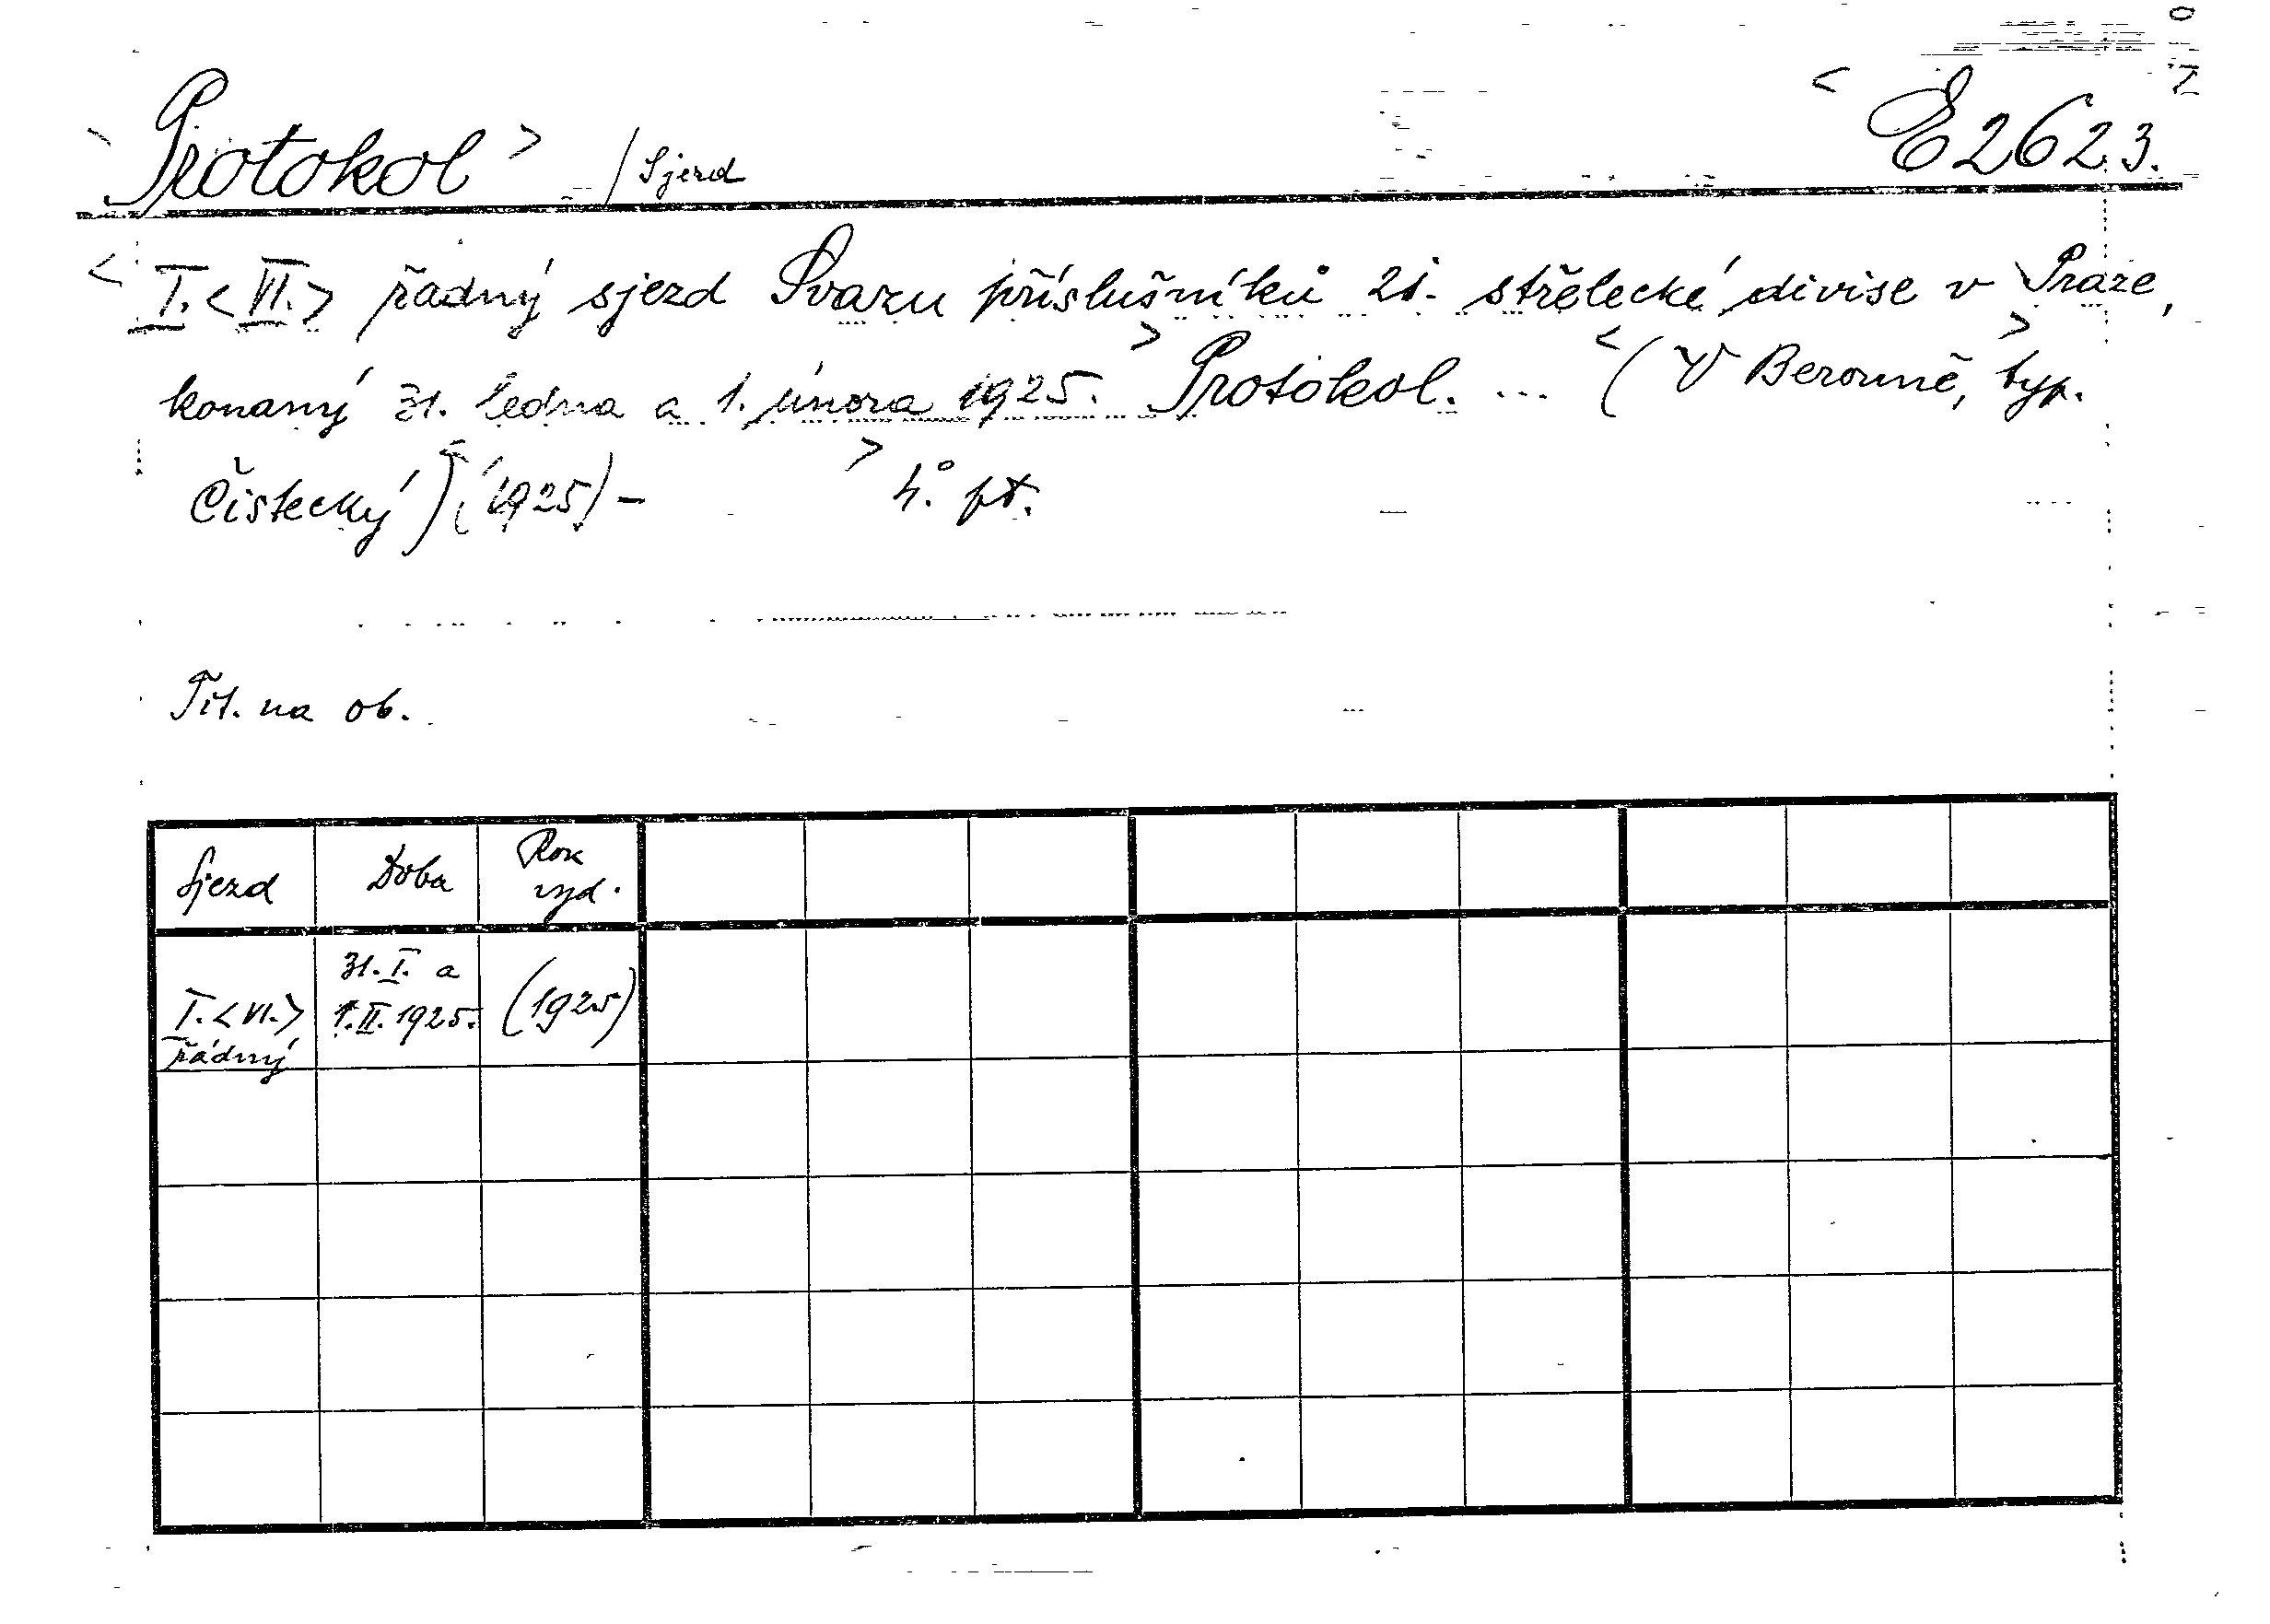 Protokol > / Sjezd < E 2623.
< I. < VI. > řádný sjezd Svazu příslušníků 21. střelecké divise v Praze,
konaný 31. ledna a 1. února 1925. > Protokol. ... < ( V Berouně, > typ.
Čistecký) (1925) – > 4° pt.
Tit. na ob.
Sjezd Doba Rok vyd.
I. < VI. > řádný 31. I. a 1. II. 1925. (1925)